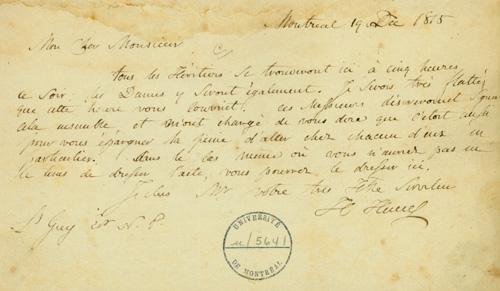 Montreal 19 Dec 1815
Mon Cher Monsieur
tous les Héritiers se trouveront ici à cinq heures
ce soir, les Dames y seront également. Je serois très flatté
que cette heure vous convint. ces Messieurs désireroient signer
cela ensemble, et m'ont chargé de vous dire que c'étoit aussi
pour vous épargner la peine d'aller chez chacun d'eux en
particulier. dans le cas même où vous n'auriez pas eu
le tems de dresser l'acte, vous pourrez le dresser ici.
Je suis Mr votre très Hble Serviteur
Ls Guy Esr N. P.
UNIVERSITÉ
u/5641
DE MONTRÉAL